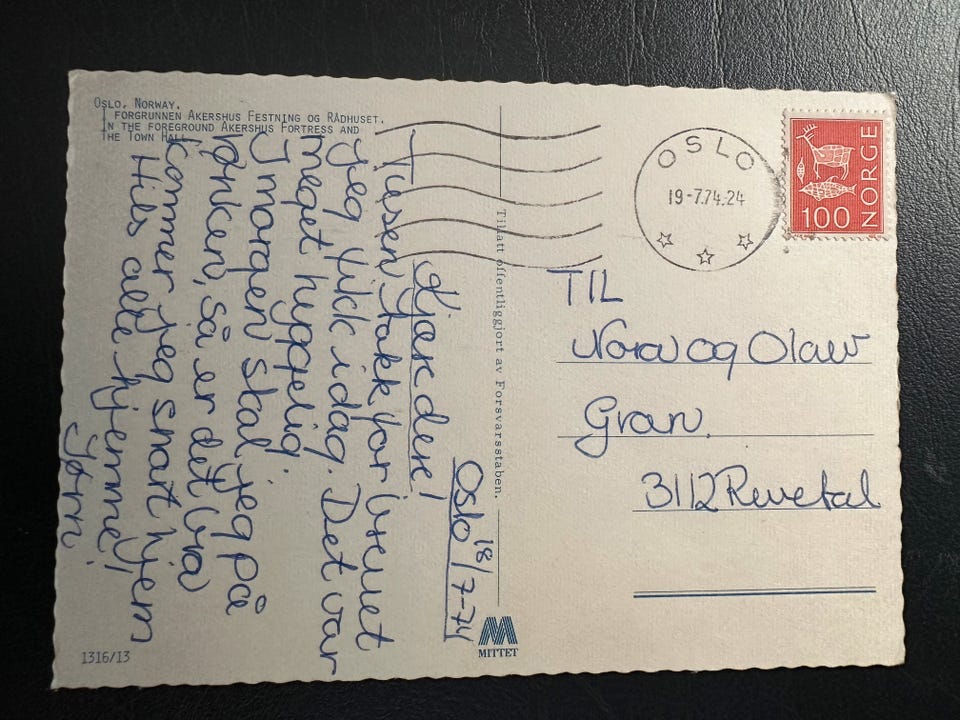 OSLO, NORWAY.
I FORGRUNNEN AKERSHUS FESTNING OG RÅDHUSET.
IN THE FOREGROUND AKERSHUS FORTRESS AND
THE TOWN HALL
Oslo 18/7-74
Kjære dere!
Tusen takk for brevet
jeg fikk idag. Det var
meget hyggelig.
I morgen skal jeg på
så er det bra
kommer jeg snart hjem
Hils alle hjemme!
Jørn
1316/13
Tillatt offentliggjort av Forsvarsstaben.
MITTET
OSLO
19-7.74.24
NORGE
100
TIL
Nora og Olav
Gran.
3112 Revetal